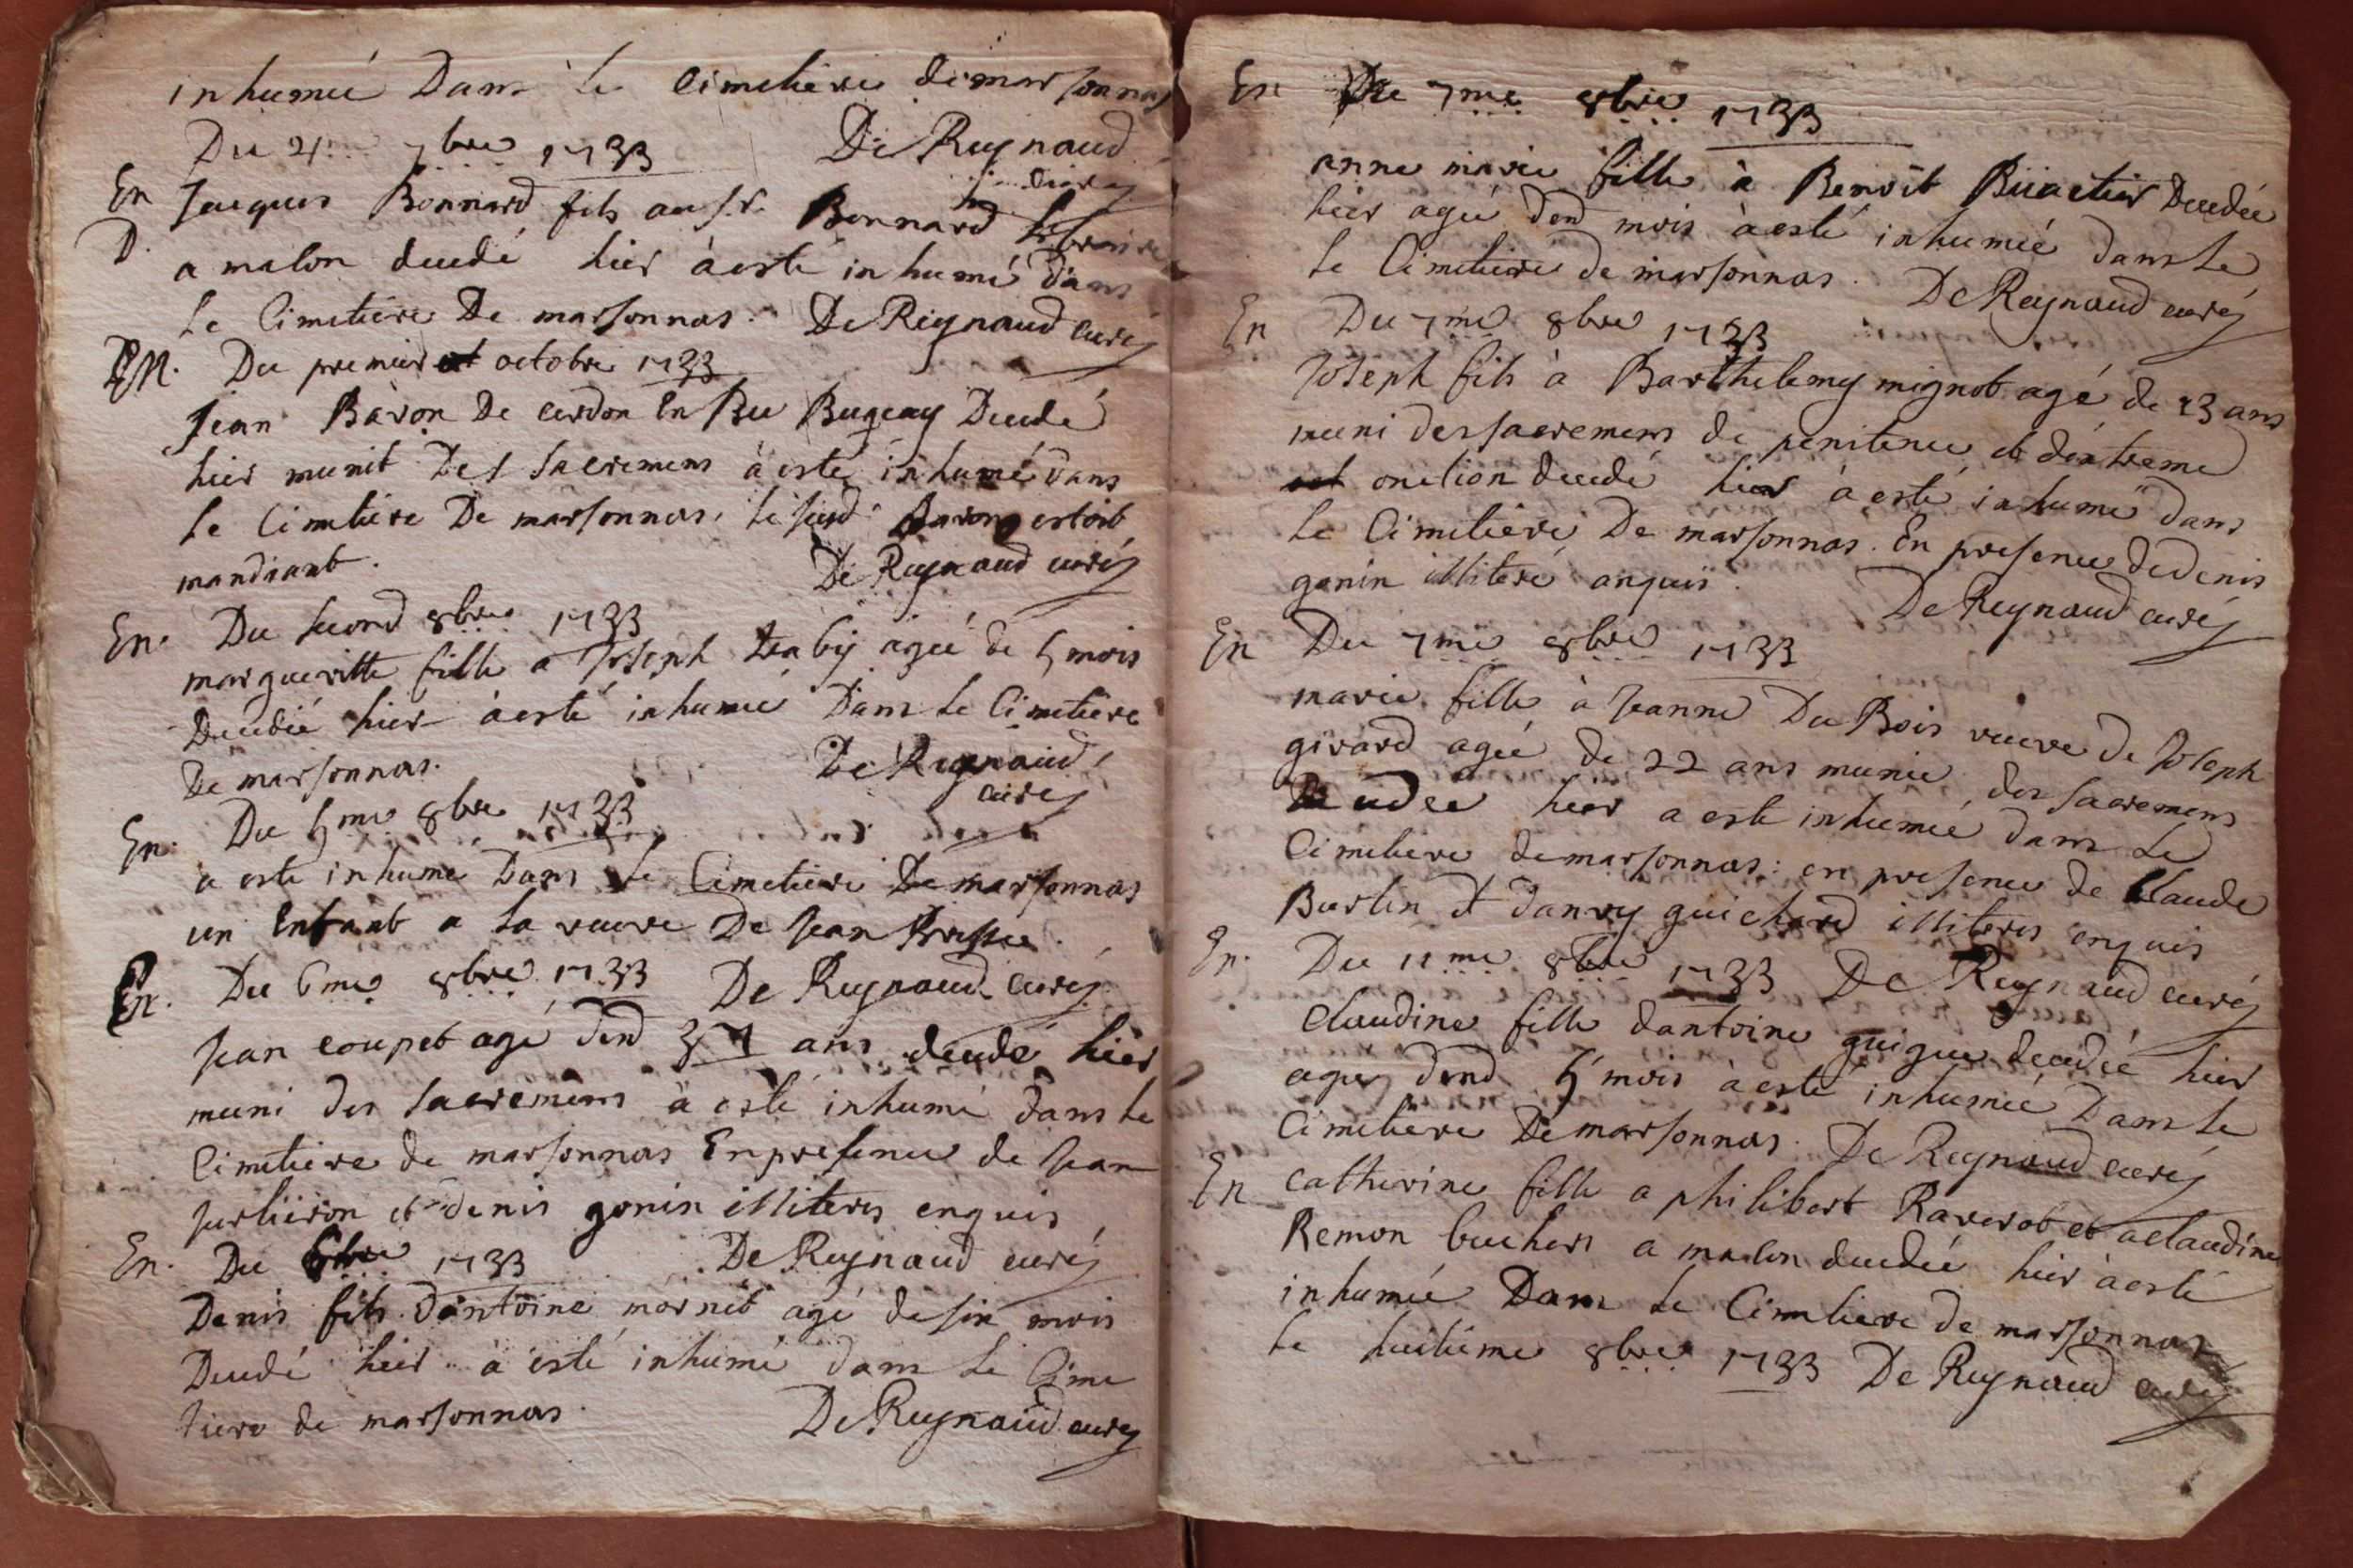 inhumée Dans le Cimetiere de marsonnas
Du 21 7bre 1733 De Reynaud
curé
En Jacques Bonnard fils au sr. Bonnard libraire
D. a malon decedé hier à esté inhumé dans
Le Cimetiere De marsonnas. De Reynaud curé
En. Du premier octobre 1733
Jean Baron De cerdon En Bu Bugeay Decedé
hier munit Des sacremens à esté inhumé dans
Le Cimetiere De marsonnas. le susd Baron estoit
mandiant. De Reynaud curé
En. Du second 8bre 1733
margueritte fille a Joseph agée de 5 mois
Decedée hier à esté inhumée Dans le Cimetiere
De marsonnas. De Reynaud
curé
En. Du 5me 8bre 1733
a esté inhumé Dans le Cimetiere De marsonnas
un Enfant a la veuve De Jean
En. Du 6me 8bre 1733 De Reynaud curé
Jean coupet agé dend 37 ans decedé hier
muni des sacremens à esté inhumé dans le
Cimetiere de marsonnas En presence de Jean
et denis gonin illiteres enquis
En. Du 1733 De Reynaud curé
Denis fils dantoine mornet agé de six mois
Decedé hier a esté inhumé dans le Cime
tiere de marsonnas. De Reynaud curé
En Du 7me 8bre 1733
anne marie fille à Benoit Decedée
hier agée dend mois à esté inhumée dans le
le Cimetiere de marsonnas. De Reynaud curé
En Du 7me 8bre 1733
Joseph fils à Barthelemy mignot agé de 23 ans
muni des sacremens de penitence et dextreme
onction decedé hier à esté inhumé dans
Le Cimetiere De marsonnas. En presence de denis
gonin illiteré anquis. De Reynaud curé
En Du 7me 8bre 1733
marie fille à Jeanne Du Bois veuve de Joseph
girard agée de 22 ans munie des sacremens
Decedée hier a esté inhumée dans le
Cimetiere de marsonnas: en presence de Claude
Burlin et danry guichard illiteres enquis
En. Du 11me 8bre 1733 De Reynaud curé
Claudine fille dantoine guigue decedée hier
agee dend 5 mois à esté inhumée Dans le
Cimetiere De marsonnas. De Reynaud curé
En catherine fille a philibert Raverot et a claudine
Remon a malon decedée hier à esté
inhumée Dans le Cimetiere de marsonnas
le huitiéme 8bre 1733 De Reynaud curé